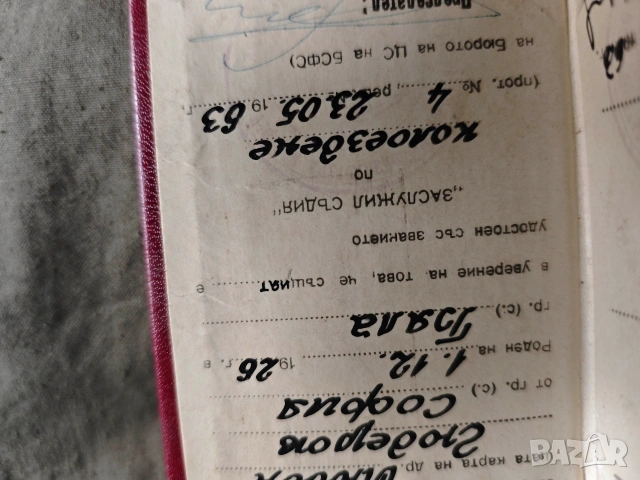 ...ата карта на др. Любен
Тюдеров
от гр. (с.) София
Роден на 1.12. 1926 г. в
гр. (с.) Бяла
в уверение на това, че същият е
удостоен със званието
„ЗАСЛУЖИЛ СЪДИЯ"
по
колоездене
(прот. № 4 23.05. 1963 г.
на Бюрото на ЦС на БСФС)
Председател:
BAZAR